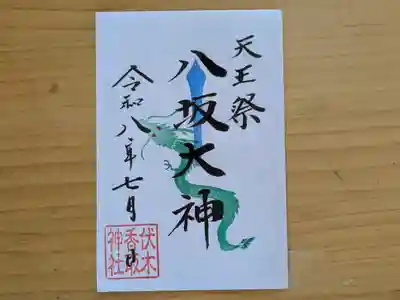 天王祭
八坂大神
令和八年七月
伏木
香取
神社